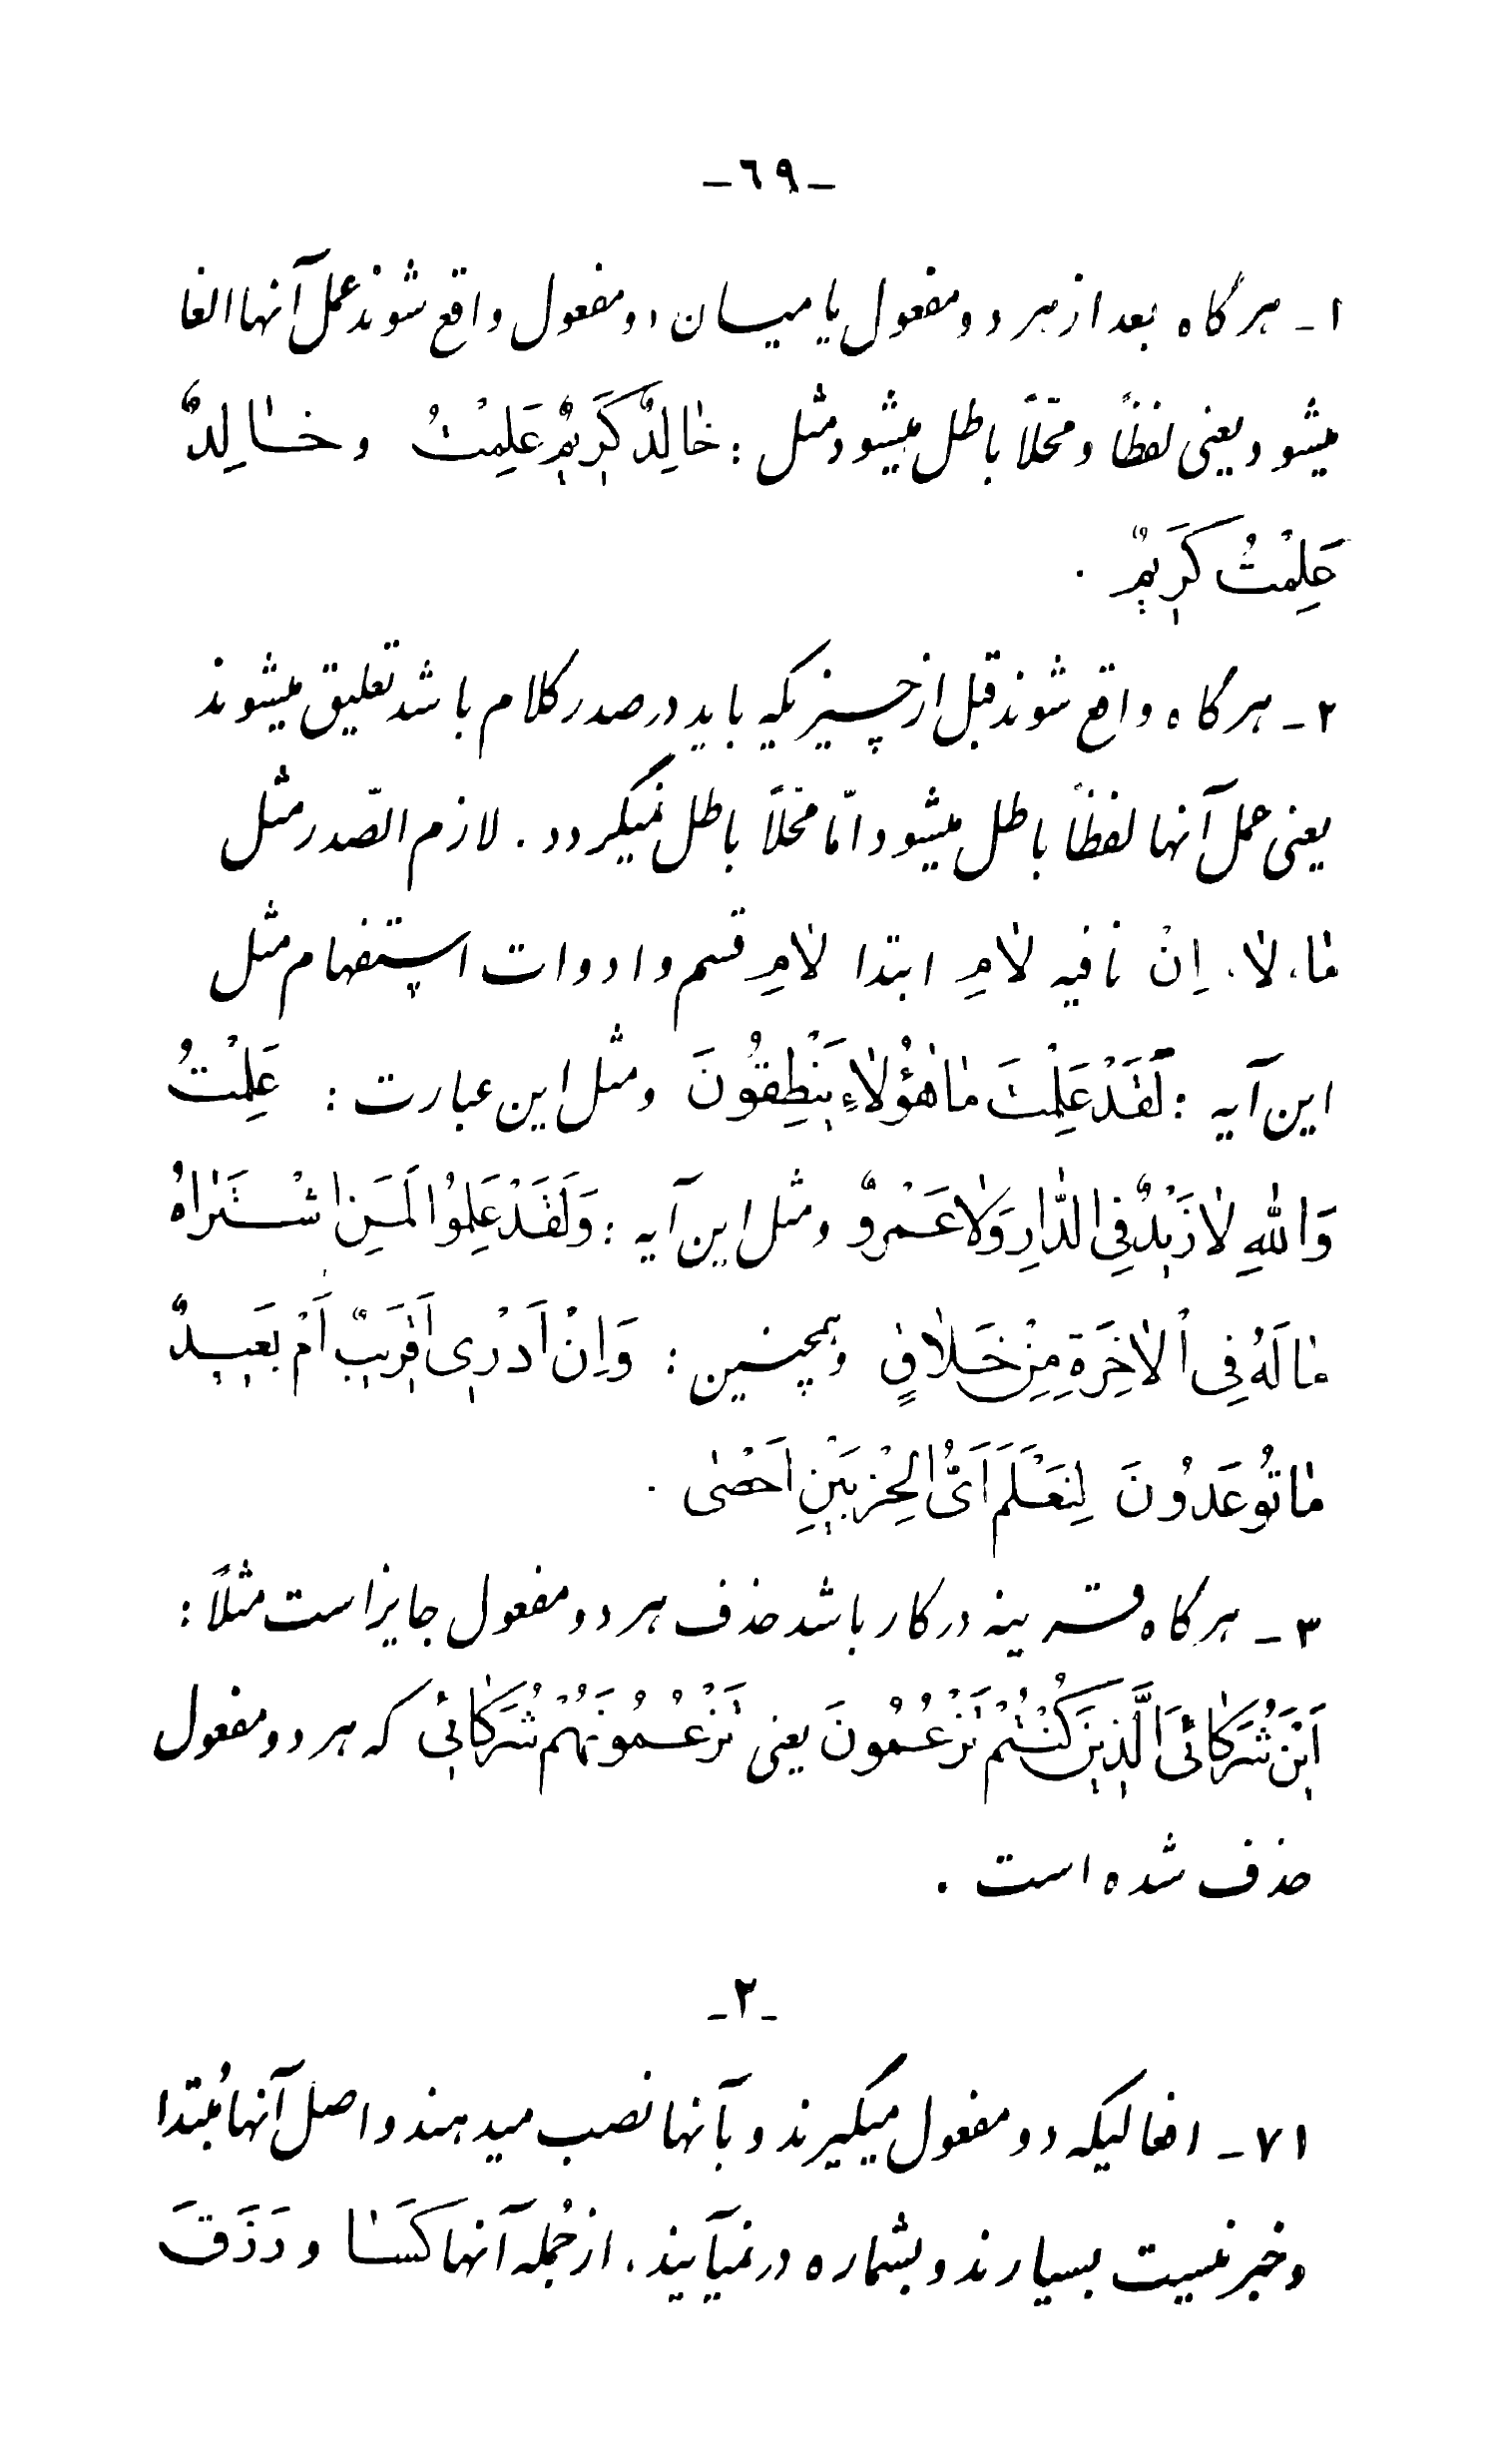 -٦٩-
١- هرگاه بعد از هر دو مفعول یا میان دو مفعول واقع شوند عمل آنها الغا
میشود یعنی لفظاً و محّلاً باطل میشود مثل : خٰالِدٌ کَرِیمٌ عَلِمْتُ و خٰالِدٌ
عَلِمْتُ کَرِیمٌ .
٢- هرگاه واقع شوند قبل از چیزیکه باید در صدر کلام باشد تعلیق میشوند
یعنی عمل آنها لفظاً باطل میشود امّا محّلاً باطل نمیگردد . لازم الصّدر مثل
مٰا، لاٰ، اِنْ نافیه لاٰمِ ابتدا لاٰمِ قسم و ادوات استفهام مثل
این آیه : لَقَدْ عَلِمْتَ مٰا هٰؤُلاٰءِ یَنْطِقُونَ و مثل این عبارت : عَلِمْتُ
وَاللّٰهِ لاٰ زَیْدٌ فِی الدّٰارِ وَلاٰ عَمْروٌ و مثل این آیه : وَلَقَدْ عَلِمُوا لَمَنِ اشْتَرٰاهُ
مٰا لَهُ فِی الْاٰخِرَةِ مِنْ خَلاٰقٍ و همچنین : وَاِنْ اَدْرِی اَقَرِیبٌ اَمْ بَعِیدٌ
مٰا تُوعَدُونَ لِنَعْلَمَ اَیُّ الْحِزْبَیْنِ اَحْصٰی .
٣- هرگاه قرینه در کار باشد حذف هر دو مفعول جایز است مثلاً :
اَیْنَ شُرَکٰائیَ الَّذِینَ کُنْتُمْ تَزْعُمُونَ یعنی تَزْعُمُونَهُمْ شُرَکٰائی که هر دو مفعول
حذف شده است .
-٢-
٧١- افعالیکه دو مفعول میگیرند و بآنها نصب میدهند و اصل آنها مُبتدا
و خبر نیست بسیارند و بشماره در نمیآیند . از جُمله آنها کَسَٰا و رَزَقَ